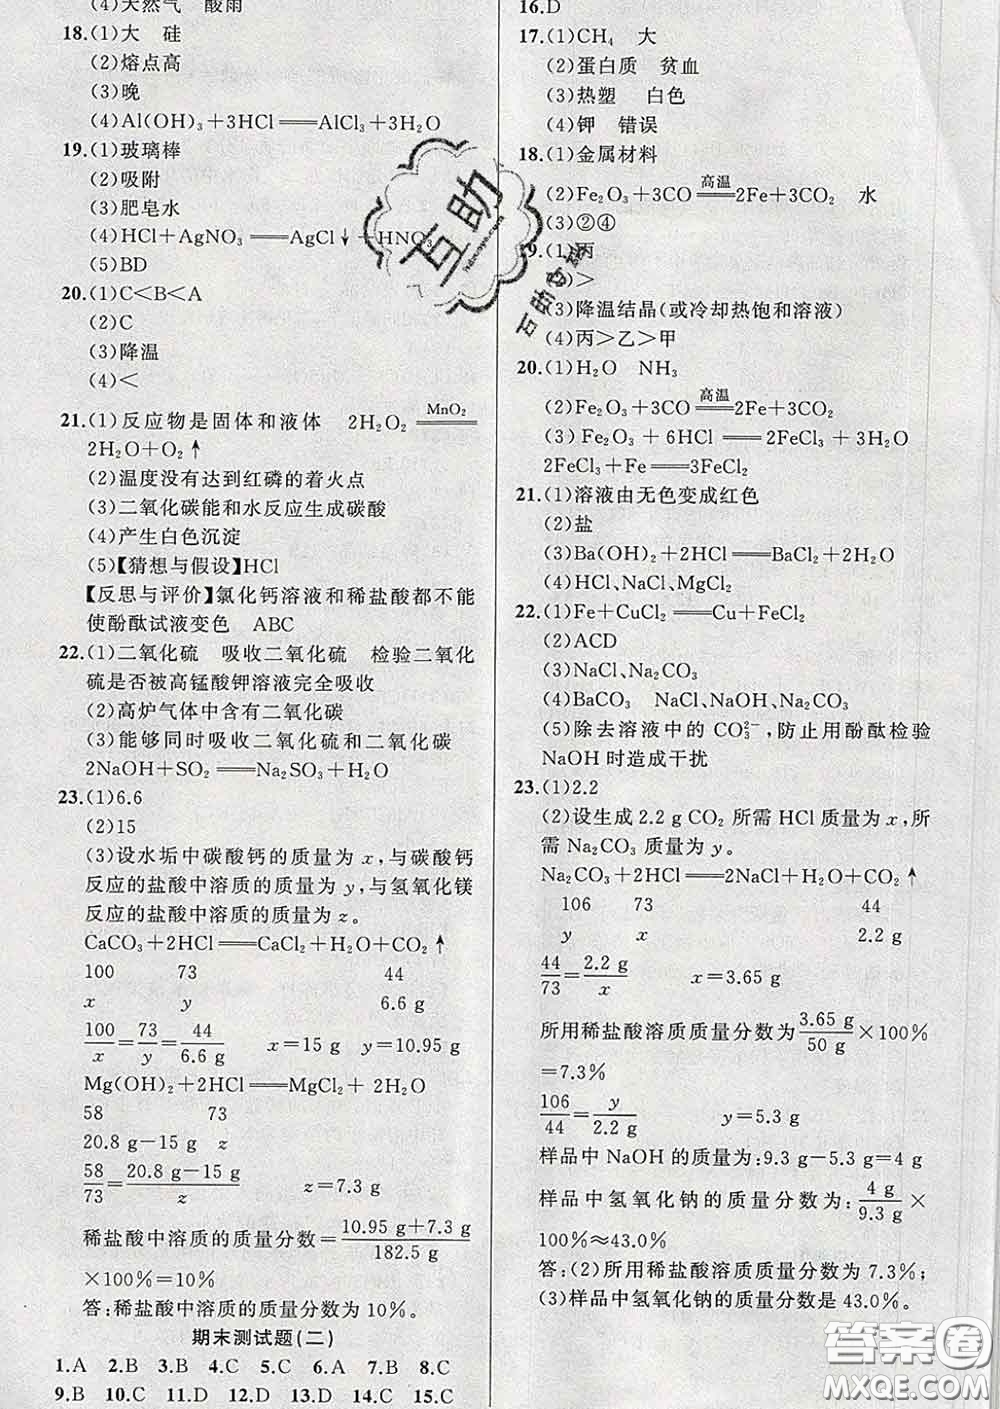 (4)天然气 酸雨
18.(1)大 硅
(2)熔点高
(3)晚
(4)Al(OH)₃+3HCl══AlCl₃+3H₂O
19.(1)玻璃棒
(2)吸附
(3)肥皂水
(4)HCl+AgNO₃══AgCl↓+HNO₃
(5)BD
20.(1)C<B<A
(2)C
(3)降温
(4)<
21.(1)反应物是固体和液体 2H₂O₂ ══MnO₂══
2H₂O+O₂↑
(2)温度没有达到红磷的着火点
(3)二氧化碳能和水反应生成碳酸
(4)产生白色沉淀
(5)【猜想与假设】HCl
【反思与评价】氯化钙溶液和稀盐酸都不能
使酚酞试液变色 ABC
22.(1)二氧化硫 吸收二氧化硫 检验二氧化
硫是否被高锰酸钾溶液完全吸收
(2)高炉气体中含有二氧化碳
(3)能够同时吸收二氧化硫和二氧化碳
2NaOH+SO₂══Na₂SO₃+H₂O
23.(1)6.6
(2)15
(3)设水垢中碳酸钙的质量为 x,与碳酸钙
反应的盐酸中溶质的质量为 y,与氢氧化镁
反应的盐酸中溶质的质量为 z。
CaCO₃+2HCl══CaCl₂+H₂O+CO₂↑
100 73 44
x y 6.6 g
100/x=73/y=44/6.6 g x=15 g y=10.95 g
Mg(OH)₂+2HCl══MgCl₂+2H₂O
58 73
20.8 g-15 g z
58/73=20.8 g-15 g/z z=7.3 g
稀盐酸中溶质的质量分数=10.95 g+7.3 g/182.5 g
×100%=10%
答:稀盐酸中溶质的质量分数为 10%。
期末测试题(二)
1.A 2.B 3.B 4.C 5.C 6.A 7.B 8.C
9.B 10.C 11.D 12.D 13.D 14.C 15.C
16.D
17.(1)CH₄ 大
(2)蛋白质 贫血
(3)热塑 白色
(4)钾 错误
18.(1)金属材料
(2)Fe₂O₃+3CO══高温══2Fe+3CO₂ 水
(3)②④
19.(1)丙
>
(3)降温结晶(或冷却热饱和溶液)
(4)丙>乙>甲
20.(1)H₂O NH₃
(2)Fe₂O₃+3CO══高温══2Fe+3CO₂
(3)Fe₂O₃+6HCl══2FeCl₃+3H₂O
2FeCl₃+Fe══3FeCl₂
21.(1)溶液由无色变成红色
(2)盐
(3)Ba(OH)₂+2HCl══BaCl₂+2H₂O
(4)HCl、NaCl、MgCl₂
22.(1)Fe+CuCl₂══Cu+FeCl₂
(2)ACD
(3)NaCl、Na₂CO₃
(4)BaCO₃ NaCl、NaOH、Na₂CO₃
(5)除去溶液中的 CO₃²⁻,防止用酚酞检验
NaOH 时造成干扰
23.(1)2.2
(2)设生成 2.2 g CO₂ 所需 HCl 质量为 x,所
需 Na₂CO₃ 质量为 y。
Na₂CO₃+2HCl══2NaCl+H₂O+CO₂↑
106 73 44
y x 2.2 g
44/73=2.2 g/x x=3.65 g
所用稀盐酸溶质质量分数为3.65 g/50 g×100%
=7.3%
106/44=y/2.2 g y=5.3 g
样品中 NaOH 的质量为:9.3 g-5.3 g=4 g
样品中氢氧化钠的质量分数为:4 g/9.3 g×
100%≈43.0%
答:(2)所用稀盐酸溶质质量分数为 7.3%;
(3)样品中氢氧化钠的质量分数是 43.0%。
互助
答案圈
MXQE.COM